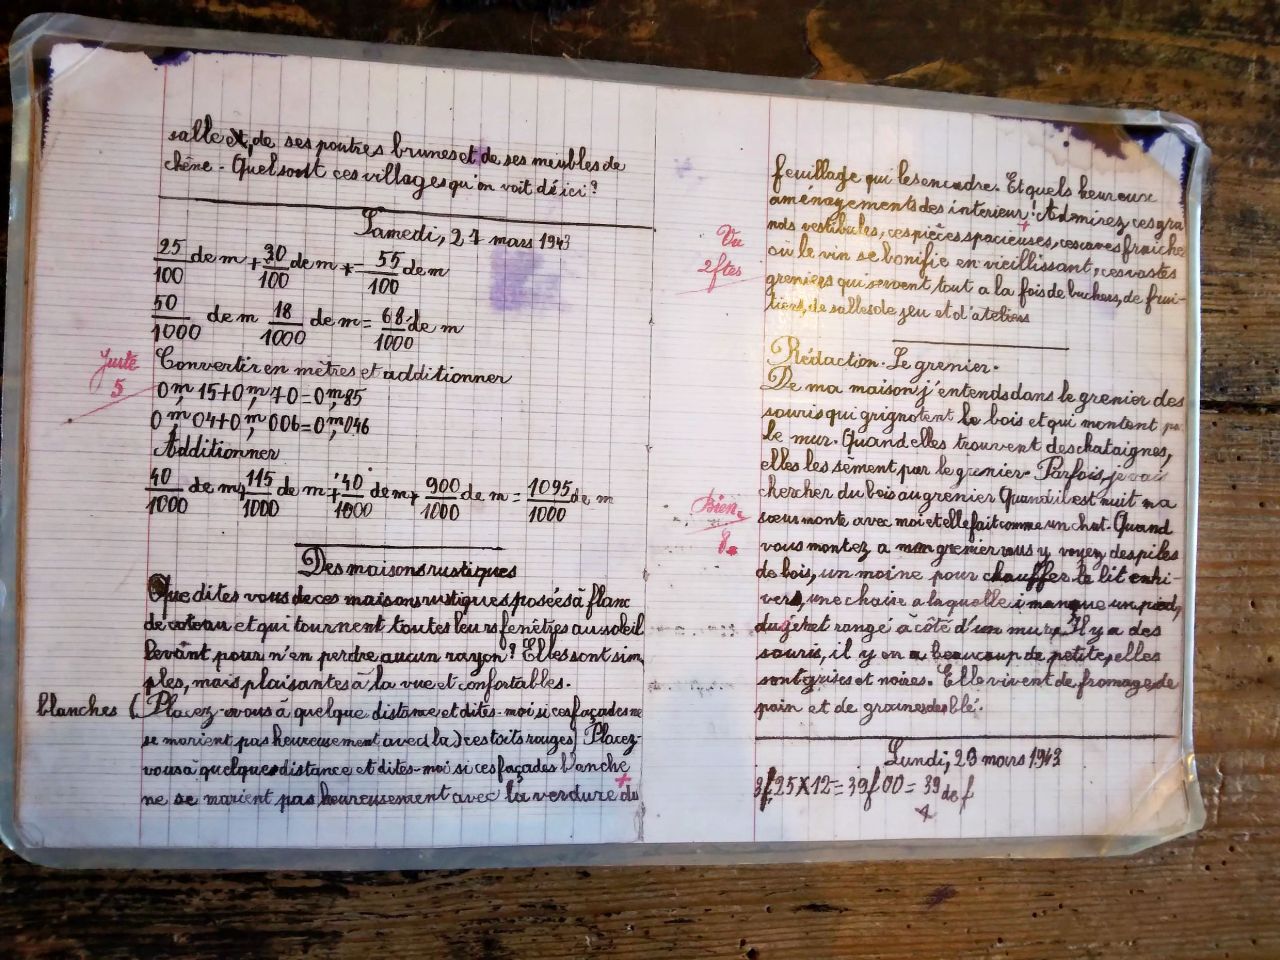 salle et, de ses poutres brunes et de ses meubles de
chêne. Quel sont ces villages qu'on voit d'ici?
Samedi, 27 mars 1943
25/100 de m + 30/100 de m + = 55/100 de m
50/1000 de m 18/1000 de m = 68/1000 de m
Convertir en mètres et additionner
Juste
5
0m,15+0m,70=0m,85
0m,04+0m,006=0m,046
Additionner
40/1000 de m + 115/1000 de m + 40/1000 de m + 900/1000 de m = 1095/1000 de m
Des maisons rustiques
Que dites vous de ces maisons rustiques posées à flanc
de coteau et qui tournent toutes leurs fenêtres au soleil
levant pour n'en perdre aucun rayon? Elles sont sim
ples, mais plaisantes à la vue et confortables.
blanches (Placez-vous à quelque distance et dites-moi si ces façades ne
se marient pas heureusement avec (la) ces toits rouges) Placez-
vous à quelque distance et dites-moi si ces façades blanche
ne se marient pas heureusement avec la verdure du
feuillage qui les encadre. Et quels heureux
aménagements des interieur! Admirez ces gra
nds vestibules, ces pièces spacieuses, ces caves fraiche
Vu
2 ftes
où le vin se bonifie en vieillissant, ces vastes
greniers qui servent tout a la fois de buchers, de frui-
tiers, de salles de jeu et d'ateliers
Rédaction. Le grenier.
De ma maison j'entends dans le grenier des
souris qui grignotent le bois et qui montent
le mur. Quand elles trouvent des chataignes,
elles les sèment par le grenier. Parfois, je vais
chercher du bois au grenier Quand il est nuit ma
Bien.
8
sœur monte avec moi et elle fait comme un chat. Quand
vous montez a mon grenier vous y voyez des piles
de bois, un moine pour chauffer le lit en hi-
ver, une chaise a laquelle i manque un pied,
du et rangé à côté d'un mur. Il y a des
souris, il y en a beaucoup de petite, elles
sont grises et noires. Elle vivent de fromage, de
pain et de graines de blé.
Lundi, 29 mars 1943
3f,25X12=39f00=39 de f
4